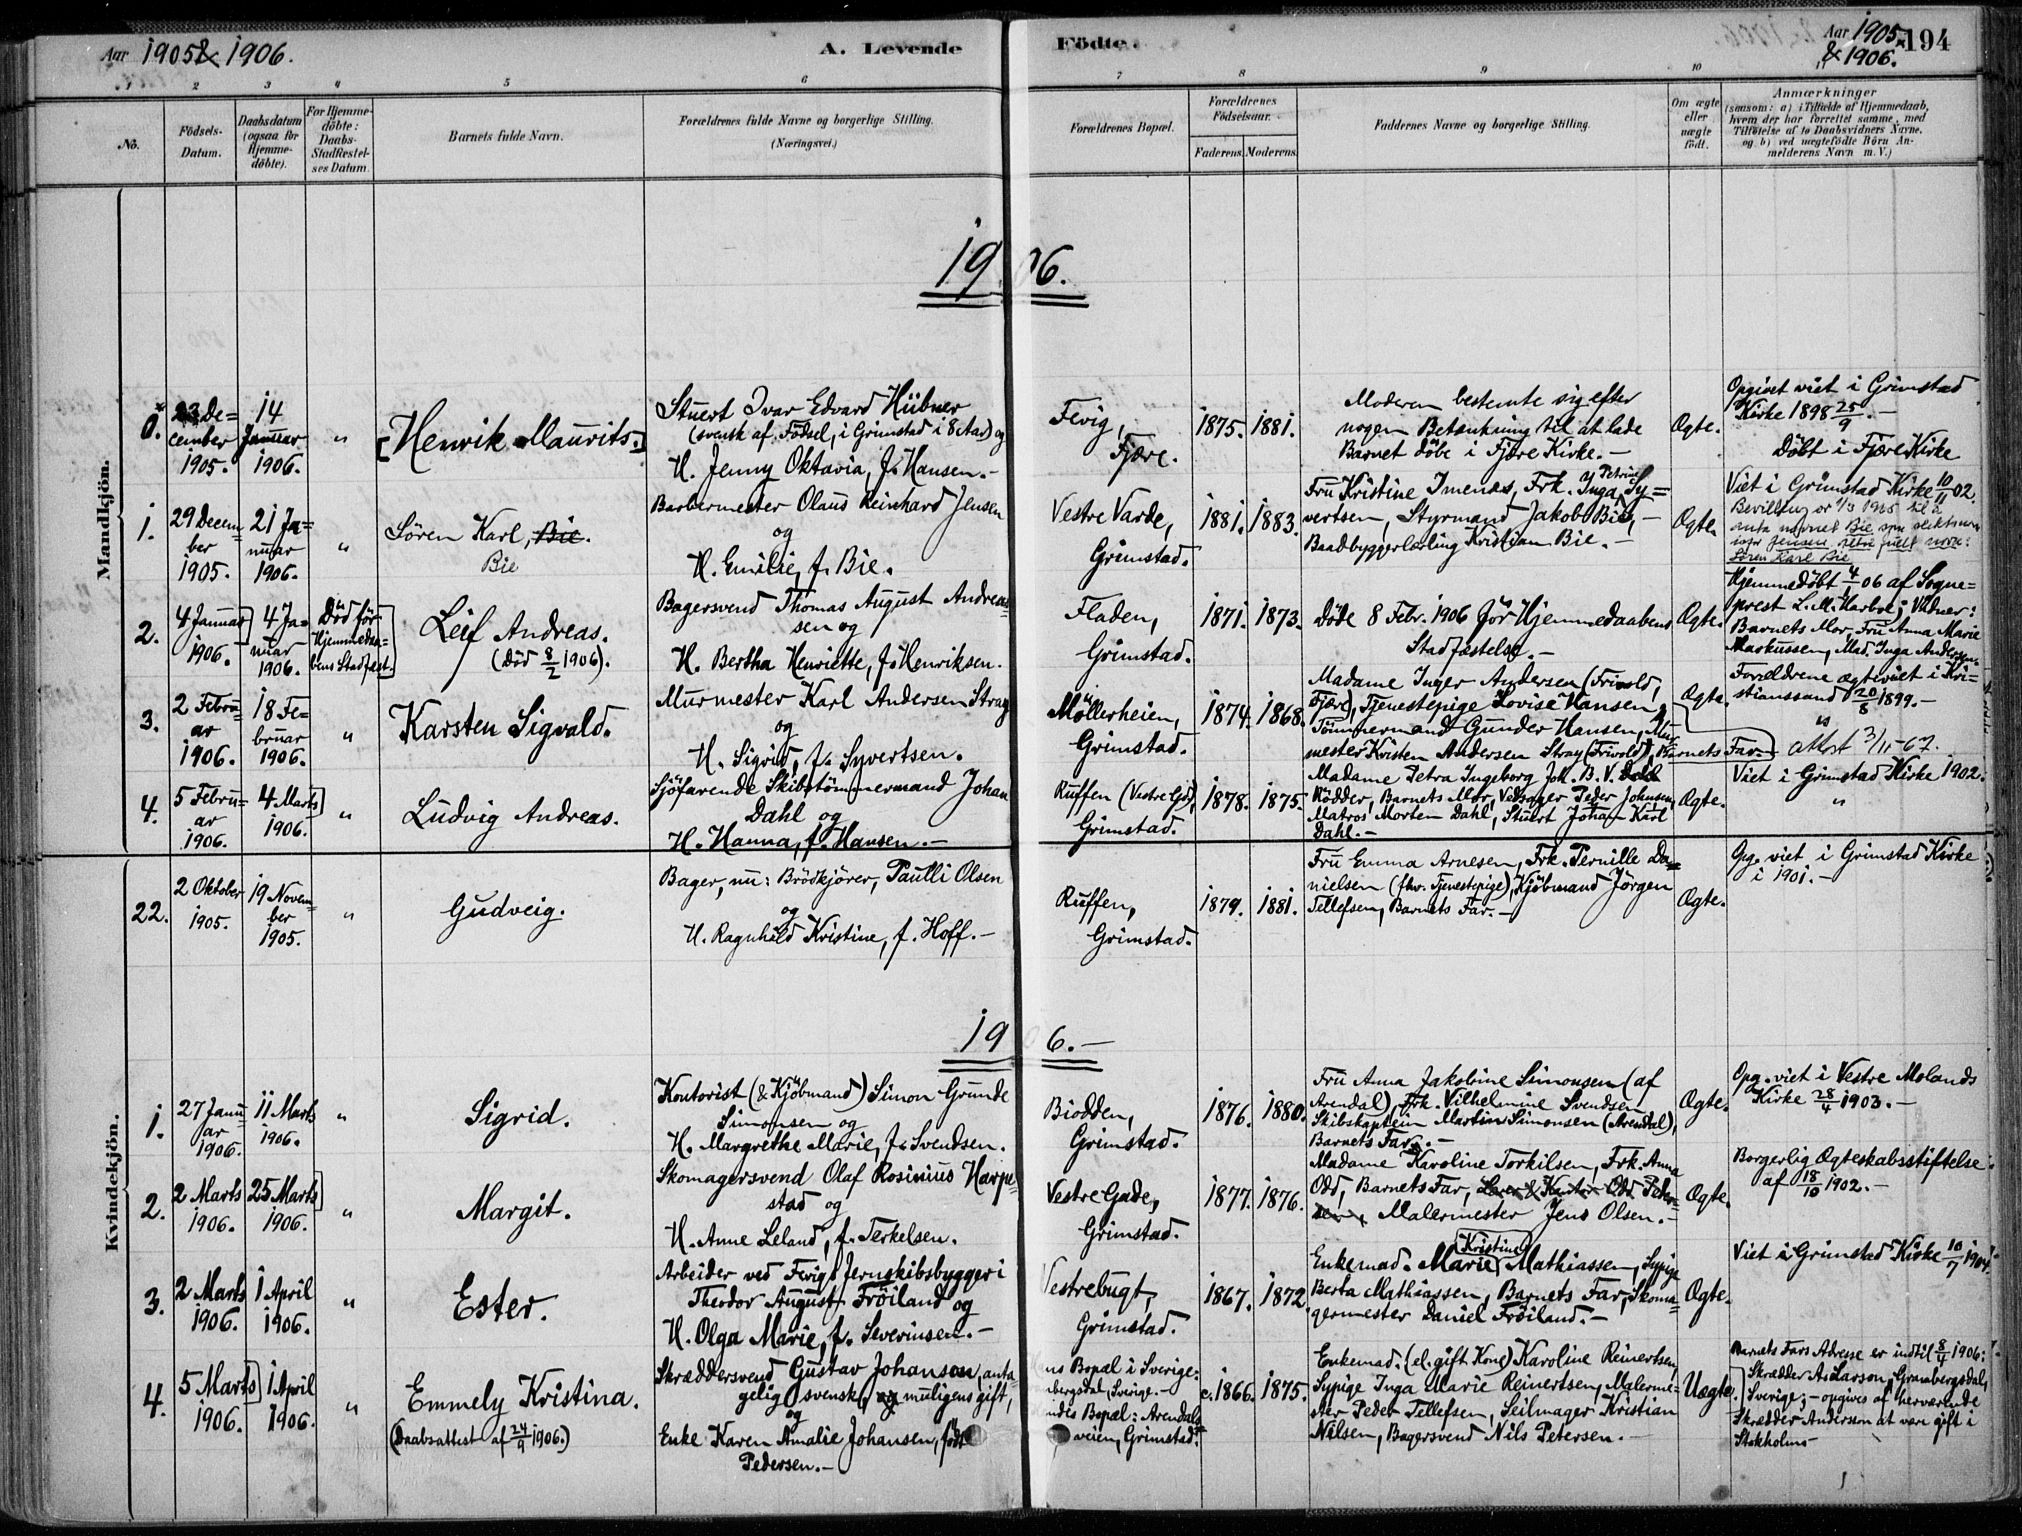 Aar 1905 & 1906.
A. Levende Födte.
Aar 1905 & 1906.
194
1 2 3 4 5 6 7 8 9 10
No.
Födsels-Datum.
Daabsdatum (ogsaa for Hjemme-döbte).
For Hjemme-döbte: Daabs-Stadfæstel-ses Datum.
Barnets fulde Navn.
Forældrenes fulde Navne og borgerlige Stilling.
(Næringsvei.)
Forældrenes Bopæl.
Forældrenes Födselsaar.
Faderens. Moderens.
Faddernes Navne og borgerlige Stilling.
Om ægte eller uægte födt.
Anmærkninger
(saasom: a) i Tilfælde af Hjemmedaab, hvem der har forrettet samme, med Tilföielse af to Daabsvidners Navne, og b) ved uægtefödte Börn An-melderens Navn m. V.)
Mandkjön.
1906.
0.
23 De=
cember
1905.
14
Januar
1906.
"
[Henrik Maurits.]
Stuert Ivar Edvard Hübner
(svensk af Födsel, i Grimstad i 8 Aar) og
H. Jenny Oktavia, f. Hansen.-
Fevig,
Fjære.
1875. 1881.
Moderen bestemte sig efter
nogen Betænkning til at lade
Barnet döbe i Fjære Kirke.-
Ægte.
Opgivet viet i Grimstad
Kirke 1898 25/9.-
Döbt i Fjære Kirke
1.
29 Decem=
ber
1905.
21 Ja=
nuar
1906.
"
Sören Karl, Bie.
Bie
Barbermester Olaus Reinhard Jensen
og
H. Emilie, f. Bie.
Vestre Varde,
Grimstad.
1881. 1883.
Fru Kristine Imenæs, Frk. Inga Petrine Sy=
vertsen, Styrmand Jakob Bie,-
Baadbyggerlærling Kristian Bie.-
Ægte.
Viet i Grimstad Kirke 10/11 02.
anta navnet Bie som slektsnavn
Jensen fulde navn:
Sören Karl Bie
2.
4 Januar
1906.
4 Ja=
nuar
1906.
Död för
Hjemmedaa=
bens Stadfæst.
Leif Andreas.
(Död 8/2 1906).
Bagersvend Thomas August Andreas=
sen og
H. Bertha Henriette, f. Henriksen.
Fladen,
Grimstad.
1871. 1873.
Döde 8 Febr. 1906 för Hjemmedaabens
Stadfæstelse.-
Ægte.
Hjemmedöbt 4/1 06 af Sogne=
prest L. M. Harboe; Vidner:
Barnets Mor, Fru Anna Marie
Markussen, Mad. Inga Andersen.
3.
2 Febru=
ar
1906.
18 Fe=
bruar
1906.
"
Karsten Sigvald.
Murmester Karl Andersen Stray
og
H. Sigrid, f. Syvertsen.
Möllerheien,
Grimstad.
1874. 1868.
Madame Inger Andersen (Frivold,
Fjære), Tjenestepige Lovise Hansen,
Tömmermand Gunder Hansen, Mur=
mester Kristen Andersen Stray (Frivold), Barnets Far.-
Ægte.
Forældrene ægteviet i Kri=
stianssand 20/8 1899.-
attest 3/11-67.
4.
5 Febru=
ar
1906.
4 Marts
1906.
"
Ludvig Andreas.
Sjöfarende Skibstömmermand Johan
Dahl og
H. Hanna, f. Hansen.-
Ruffen (Vestre Gd),
Grimstad.
1878. 1875.
Madame Petra Ingeborg Joh. B. V. Dahl
Rödder, Barnets Mor, Peder Johnsen,
Matros Morten Dahl, Stuert Johan Karl
Dahl.-
Ægte.
Viet i Grimstad Kirke 1902.
"
22.
2 Oktober
1905.
19 Novem=
ber
1905.
"
Gudveig.
Bager, nu: Brödkjörer, Paulli Olsen
og
H. Ragnhild Kristine, f. Hoff.-
Ruffen,
Grimstad.
1879. 1881.
Fru Emma Arnesen, Frk. Pernille Da=
nielsen (fhv. Tjenestepige), Kjöbmand Jörgen
Tellefsen, Barnets Far.-
Ægte.
Opg. viet i Grimstad Kirke
i 1901.-
Kvindekjön.
1906.-
1.
27 Janu=
ar
1906.
11 Marts
1906.
"
Sigrid.
Kontorist (& Kjöbmand) Simon Grunde
Simonsen og
H. Margrethe Marie, f. Svendsen.
Biodden,
Grimstad.
1876. 1880.
Fru Anna Jakobine Simonsen (af
Arendal), Frk. Vilhelmine Svendsen,
Skibskaptein Martin Simonsen (Arendal),
Barnets Far.-
Ægte.
Opg. viet i Vestre Molands
Kirke 28/4 1903.-
2.
2 Marts
1906.
25 Marts
1906.
"
Margit.
Skomagersvend Olaf Rosinius Harpe=
stad og
H. Anne Leland, f. Terkelsen.
Vestre Gade,
Grimstad.
1877. 1876.
Madame Karoline Torkilsen, Frk. Anna
Odd, Barnets Far, Lærer & Kantor Odd Peter=
sen, Malermester Jens Olsen.-
Ægte.
Borgerlig Ægteskabsstiftelse
af 18/10 1902.-
3.
2 Marts
1906.
1 April
1906.
"
Ester.
Arbeider ved Fevigs Jernskibsbyggeri
Theodor August Fröiland og
H. Olga Marie, f. Severinsen.-
Vestrebugt,
Grimstad.
1867. 1872.
Enkemad. Marie (Kristine) Mathiassen, Sypige
Berta Mathiassen, Barnets Far, Skoma=
germester Daniel Fröiland.-
Ægte.
Viet i Grimstad Kirke 10/7 1904.
4.
5 Marts
1906.
1 April
1906.
"
Emmely Kristina.
(Daabsattest af 24/9 1906.)
Skræddersvend Gustav Johanson, anta=
gelig svensk, og muligens gift,
og
Enke Karen Amalie Johansen, födt
Pedersen.-
Bopæl i Sverige:
Sverige.-
Bopæl: Arendals=
veien, Grimstad.
c. 1866. 1875.
Enkemad. (el. gift Kone) Karoline Reinertsen,
Sypige Inga Marie Reinertsen, Malerme=
ster Peder Tellefsen, Seilmager Kristian
Nilsen, Bagersvend Nils Petersen.-
Uægte.
Barnets Fars Adresse er indtil 8/4 1906:
Skrædder A. Larson, Granbergsdal,
Sverige;- opgives af herværende
Skrædder Anderson at være gift i
Stokholm